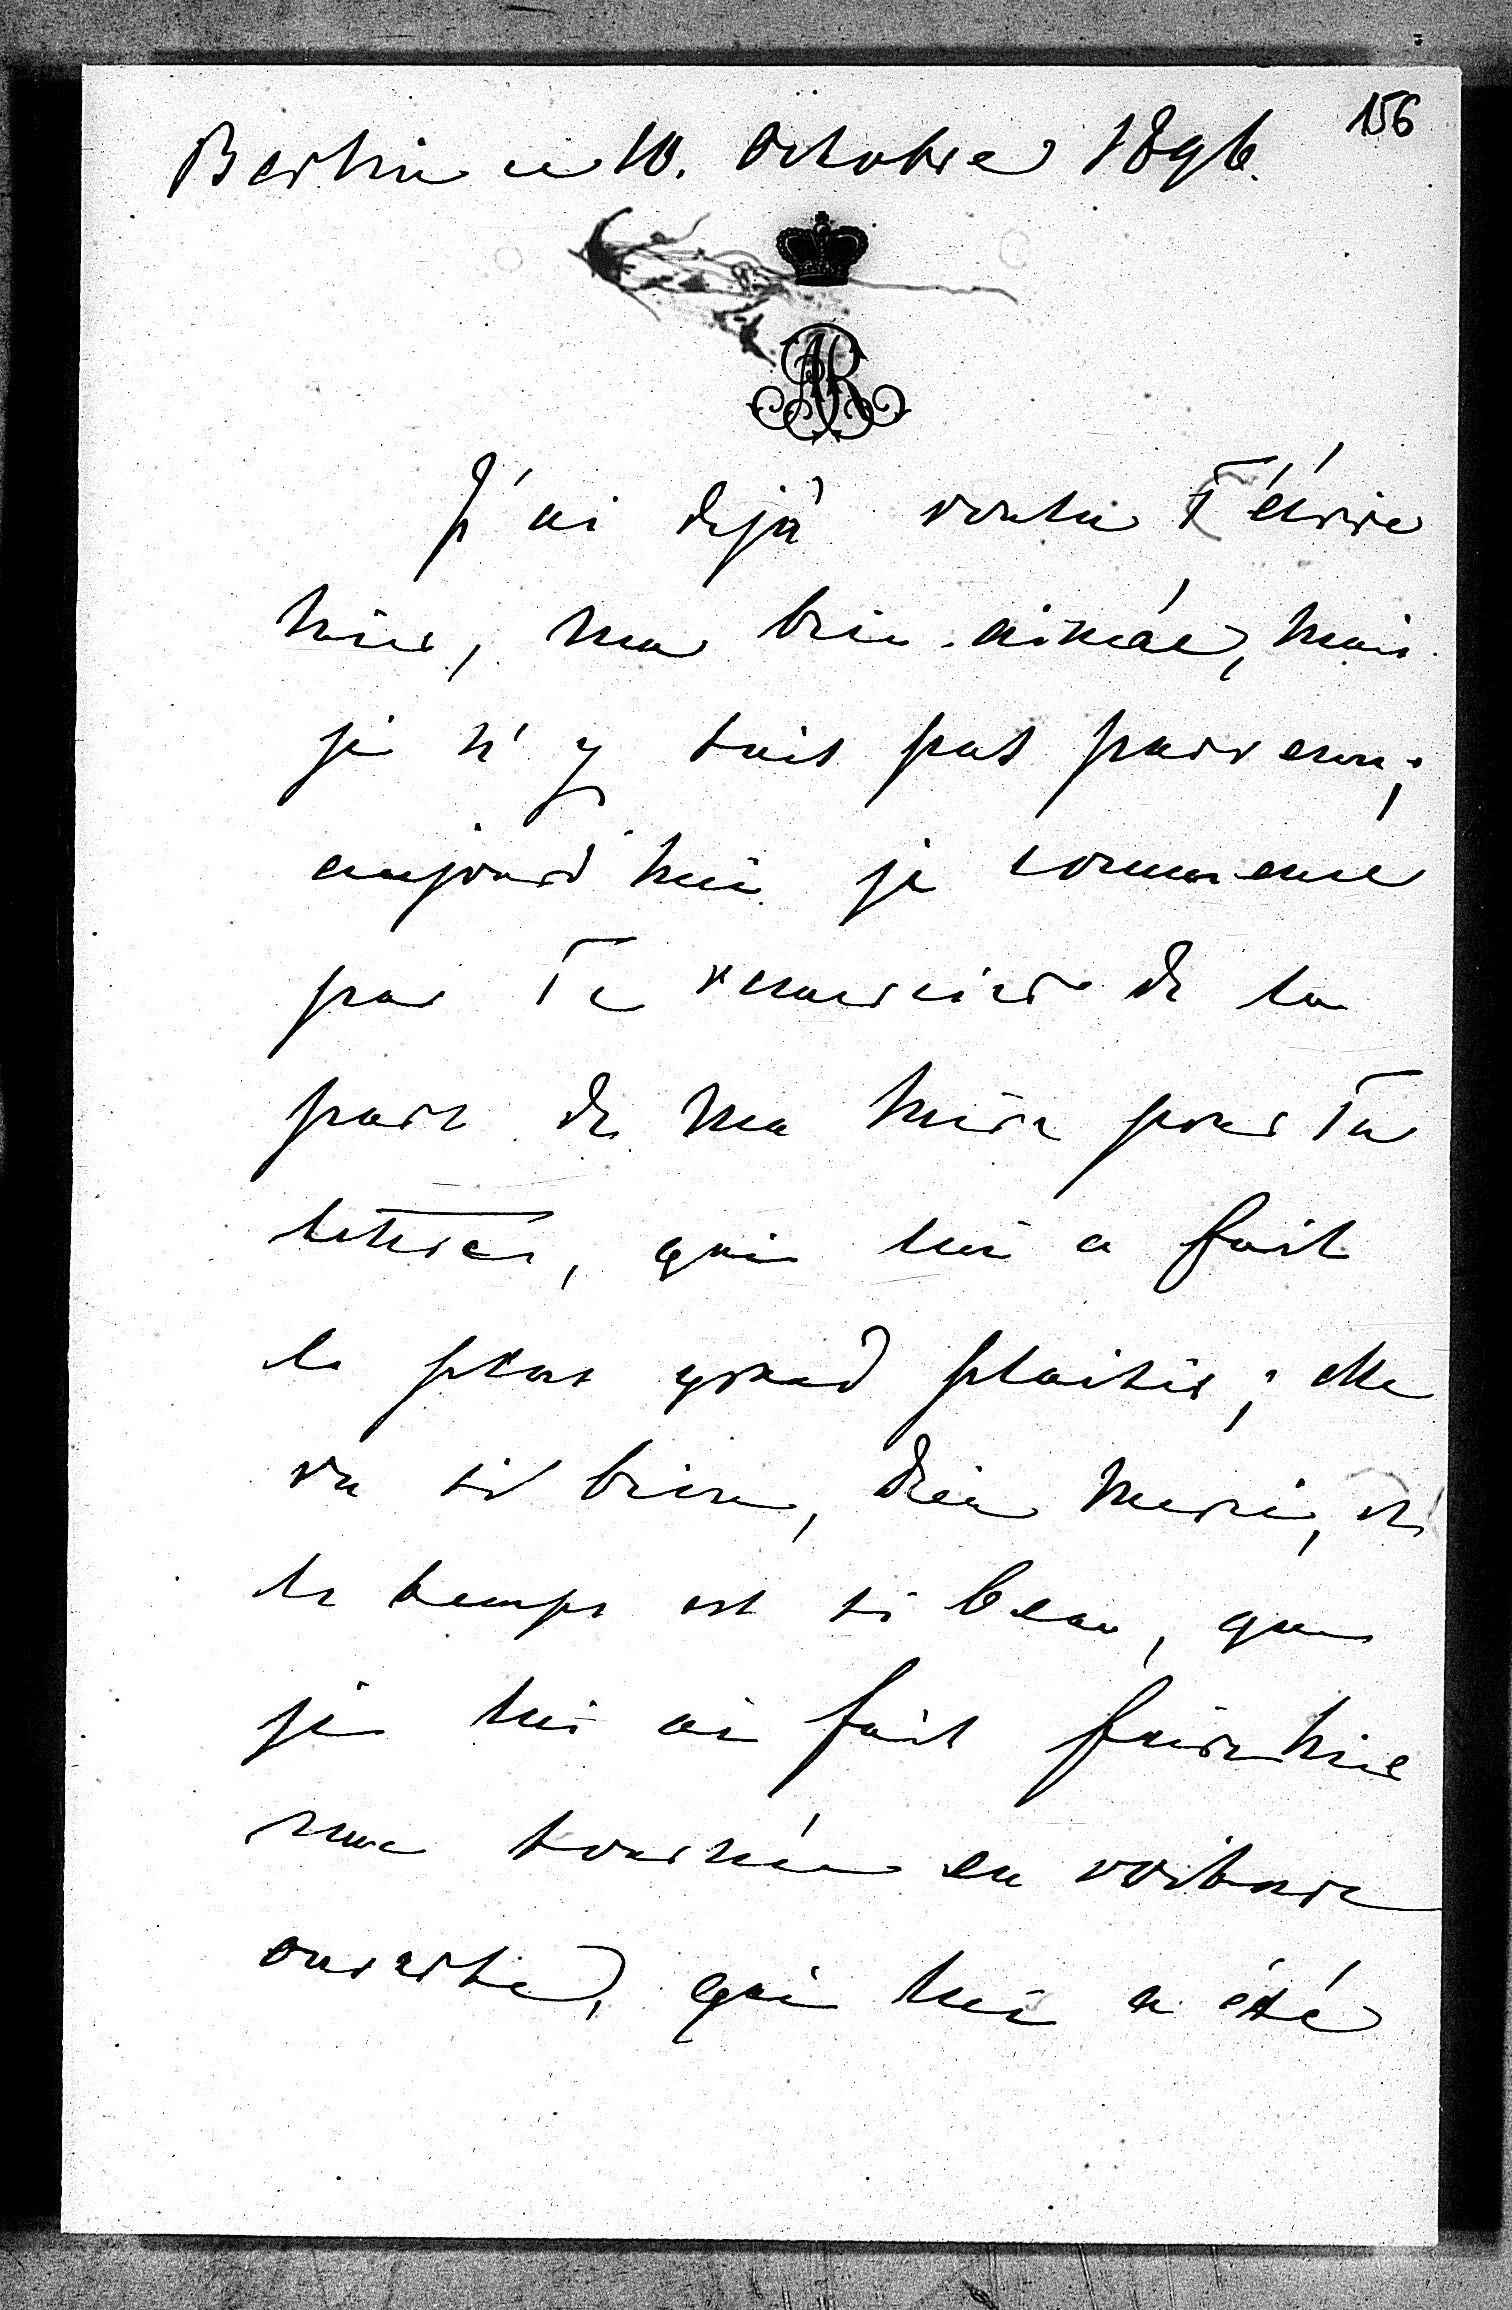 156
Berlin ce 10. Octobre 1896.
AR
J'ai dejà voulu T'écrire
hier, ma bien-aimée, mais
je n'y suis pas parvenu;
aujourd'hui je commence
par Te remercier de la
part de ma mère pour Ta
lettre, qui lui a fait
le plus grand plaisir; elle
va si bien, Dieu merci, et
le temps est si beau, que
je lui ai fait faire hier
une tournée en voiture
ouverte, qui lui a été